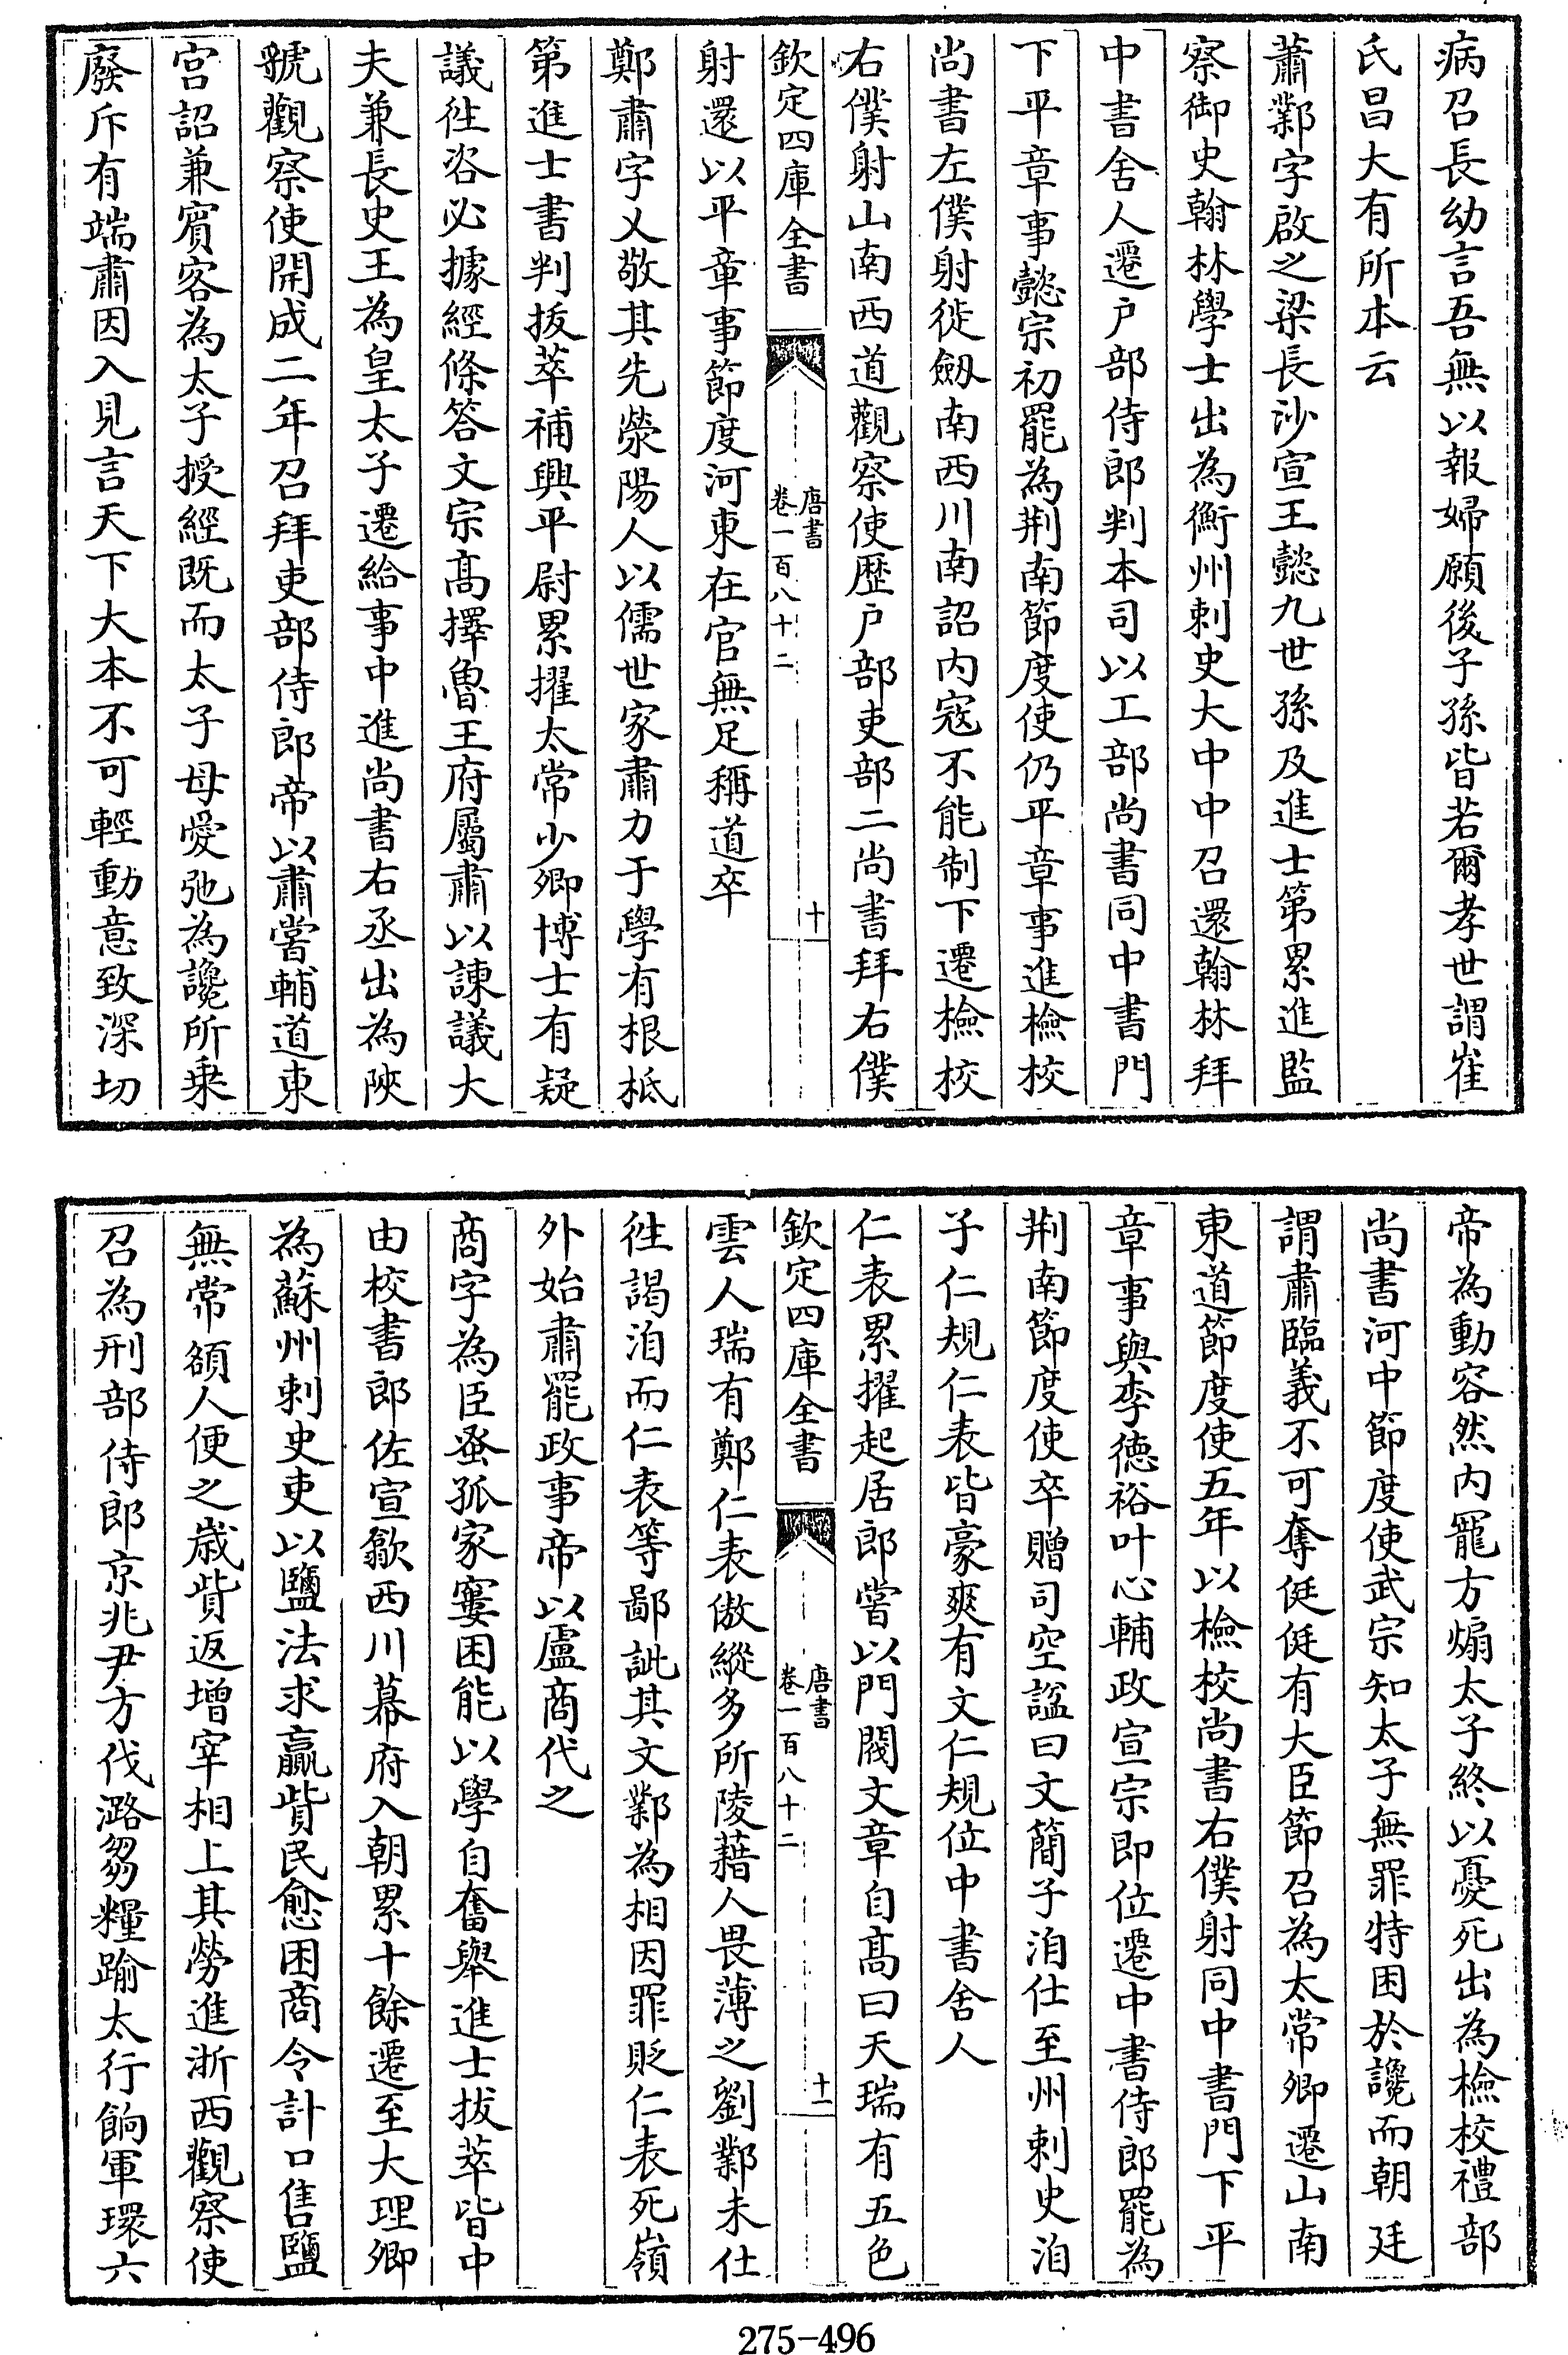 病召長幼言吾無以報婦願後子孫皆若爾孝世謂崔
氏昌大有所本云
蕭鄴字啟之梁長沙宣王懿九世孫及進士第累進監
察御史翰林學士出為衡州刺史大中中召還翰林拜
中書舍人遷户部侍郎判本司以工部尚書同中書門
下平章事懿宗初罷為荆南節度使仍平章事進檢校
尚書左僕射徙劔南西川南詔内寇不能制下遷檢校
右僕射山南西道觀察使歷户部吏部二尚書拜右僕
欽定四庫全書
唐書
卷一百八十二
十
射還以平章事節度河東在官無足稱道卒
鄭肅字乂敬其先滎陽人以儒世家肅力于學有根柢
第進士書判拔萃補興平尉累擢太常少卿博士有疑
議徃咨必據經條答文宗髙擇魯王府屬肅以諫議大
夫兼長史王為皇太子遷給事中進尚書右丞出為陜
虢觀察使開成二年召拜吏部侍郎帝以肅嘗輔道東
宫詔兼賓客為太子授經既而太子母愛弛為讒所乗
廢斥有端肅因入見言天下大本不可輕動意致深切
帝為動容然内寵方煽太子終以憂死出為檢校禮部
尚書河中節度使武宗知太子無罪特困於讒而朝廷
謂肅臨義不可奪侹侹有大臣節召為太常卿遷山南
東道節度使五年以檢校尚書右僕射同中書門下平
章事與李德裕叶心輔政宣宗即位遷中書侍郎罷為
荆南節度使卒贈司空諡曰文簡子洎仕至州刺史洎
子仁規仁表皆豪爽有文仁規位中書舍人
仁表累擢起居郎嘗以門閥文章自髙曰天瑞有五色
欽定四庫全書
唐書
卷一百八十二
十一
雲人瑞有鄭仁表傲縱多所陵藉人畏薄之劉鄴未仕
徃謁洎而仁表等鄙訿其文鄴為相因罪貶仁表死嶺
外始肅罷政事帝以盧商代之
商字為臣蚤孤家窶困能以學自奮舉進士拔萃皆中
由校書郎佐宣歙西川幕府入朝累十餘遷至大理卿
為蘇州刺史吏以鹽法求贏貲民愈困商令計口售鹽
無常額人便之歲貲返增宰相上其勞進浙西觀察使
召為刑部侍郎京兆尹方伐潞芻糧踰太行餉軍環六
275-496